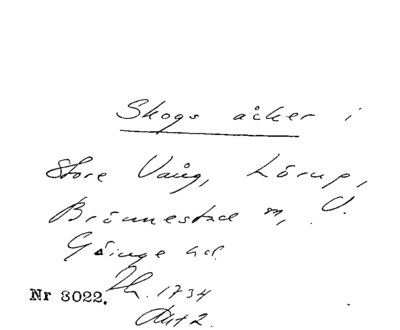 Skogs åcker i
Store Vång, Lörup,
Brönnestad m, V.
Göinge hd.
Nr 3022. Jh. 1734
Akt 2.